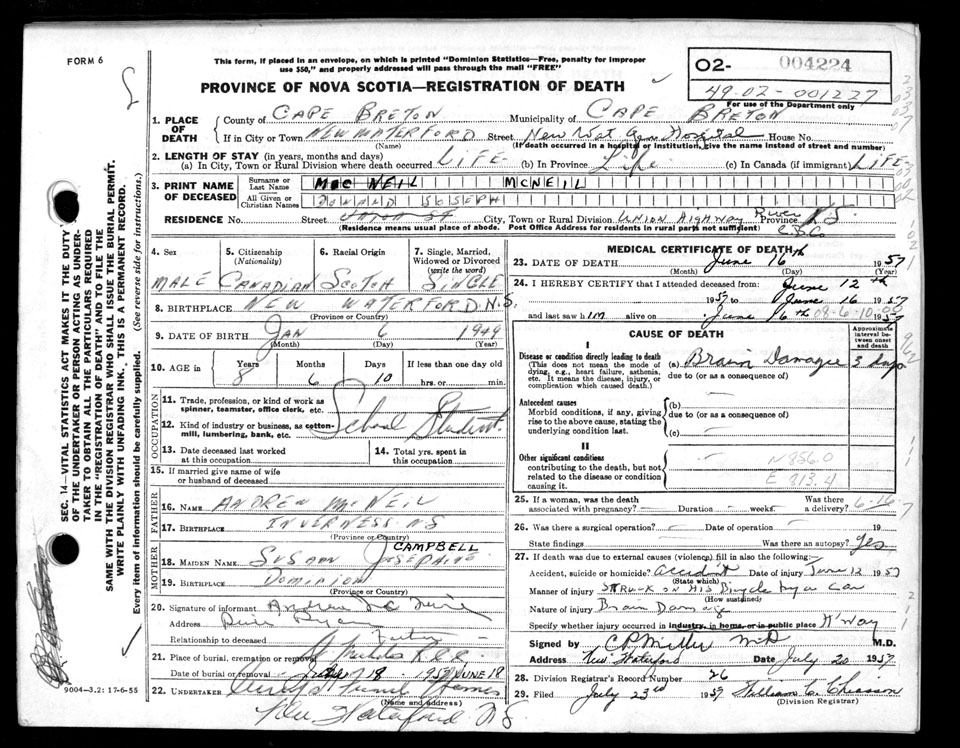 FORM 6
This form, if placed in an envelope, on which is printed "Dominion Statistics—Free, penalty for improper
use $50," and properly addressed will pass through the mail "FREE"
O2- 004224
49-02-001227
For use of the Department only
PROVINCE OF NOVA SCOTIA—REGISTRATION OF DEATH
1. PLACE OF DEATH
County of CAPE BRETON Municipality of CAPE BRETON
If in City or Town NEW WATERFORD Street New Wat Gen Hospital House No.
(Name) (If death occurred in a hospital or institution, give the name instead of street and number)
2. LENGTH OF STAY (in years, months and days)
(a) In City, Town or Rural Division where death occurred LIFE (b) In Province Life (c) In Canada (if immigrant) LIFE
3. PRINT NAME OF DECEASED
Surname or Last Name Mac NEIL MCNEIL
All Given or Christian Names DONALD JOSEPH
RESIDENCE No. Street City, Town or Rural Division UNION HIGHWAY River Province N.S.
(Residence means usual place of abode. Post Office Address for residents in rural parts not sufficient) C.B.Co
4. Sex MALE
5. Citizenship (Nationality) Canadian
6. Racial Origin Scotch
7. Single, Married, Widowed or Divorced (write the word) SINGLE
8. BIRTHPLACE NEW WATERFORD, N.S.
(Province or Country)
9. DATE OF BIRTH Jan 6 1949
(Month) (Day) (Year)
10. AGE in Years 8 Months 6 Days 10 If less than one day old hrs. or min.
OCCUPATION
11. Trade, profession, or kind of work as spinner, teamster, office clerk, etc.
12. Kind of industry or business, as cotton-mill, lumbering, bank, etc.
School Student
13. Date deceased last worked at this occupation
14. Total yrs. spent in this occupation
15. If married give name of wife or husband of deceased
FATHER
16. Name ANDREW McNEIL
17. Birthplace INVERNESS NS
(Province or Country)
MOTHER
18. Maiden Name SUSAN JOSEPHINE CAMPBELL
19. Birthplace Dominion
(Province or Country)
20. Signature of informant Andrew Mc Neil
Address River Ryan
Relationship to deceased Father
21. Place of burial, cremation or removal
Date of burial or removal 18 1957 JUNE 18
22. Undertaker Home
(Name and address)
New Waterford NS
MEDICAL CERTIFICATE OF DEATH
23. DATE OF DEATH June 16th 1957
(Month) (Day) (Year)
24. I HEREBY CERTIFY that I attended deceased from: June 12th
1957 to June 16 1957
and last saw him alive on June 16th 1957
CAUSE OF DEATH
Approximate interval between onset and death
I
Disease or condition directly leading to death
(This does not mean the mode of dying, e.g., heart failure, asthenia, etc. It means the disease, injury, or complication which caused death.)
(a) Brain Damage 3 days
due to (or as a consequence of)
Antecedent causes
Morbid conditions, if any, giving rise to the above cause, stating the underlying condition last.
(b)
due to (or as a consequence of)
(c)
II
Other significant conditions
contributing to the death, but not related to the disease or condition causing it.
N856.0
E 813.4
25. If a woman, was the death associated with pregnancy? Duration weeks. Was there a delivery? 6-16-7
26. Was there a surgical operation? Date of operation 19
State findings Was there an autopsy? Yes
27. If death was due to external causes (violence) fill in also the following:—
Accident, suicide or homicide? accident Date of injury June 12 1957
(State which)
Manner of injury STRUCK ON HIS Bicycle by a Car
(How sustained)
Nature of injury Brain Damage
Specify whether injury occurred in industry, in home, or in public place H'way
Signed by C P Miller MD M.D.
Address New Waterford Date July 20 1957
28. Division Registrar's Record Number 26
29. Filed July 23rd 1957 William C. Chiasson
(Division Registrar)
SEC. 14—VITAL STATISTICS ACT MAKES IT THE DUTY
OF THE UNDERTAKER OR PERSON ACTING AS UNDER-
TAKER TO OBTAIN ALL THE PARTICULARS REQUIRED
IN THE "REGISTRATION OF DEATH" AND TO FILE THE
SAME WITH THE DIVISION REGISTRAR WHO SHALL ISSUE THE BURIAL PERMIT.
WRITE PLAINLY WITH UNFADING INK. THIS IS A PERMANENT RECORD.
Every item of information should be carefully supplied. (See reverse side for instructions.)
9004—3.2: 17-6-55